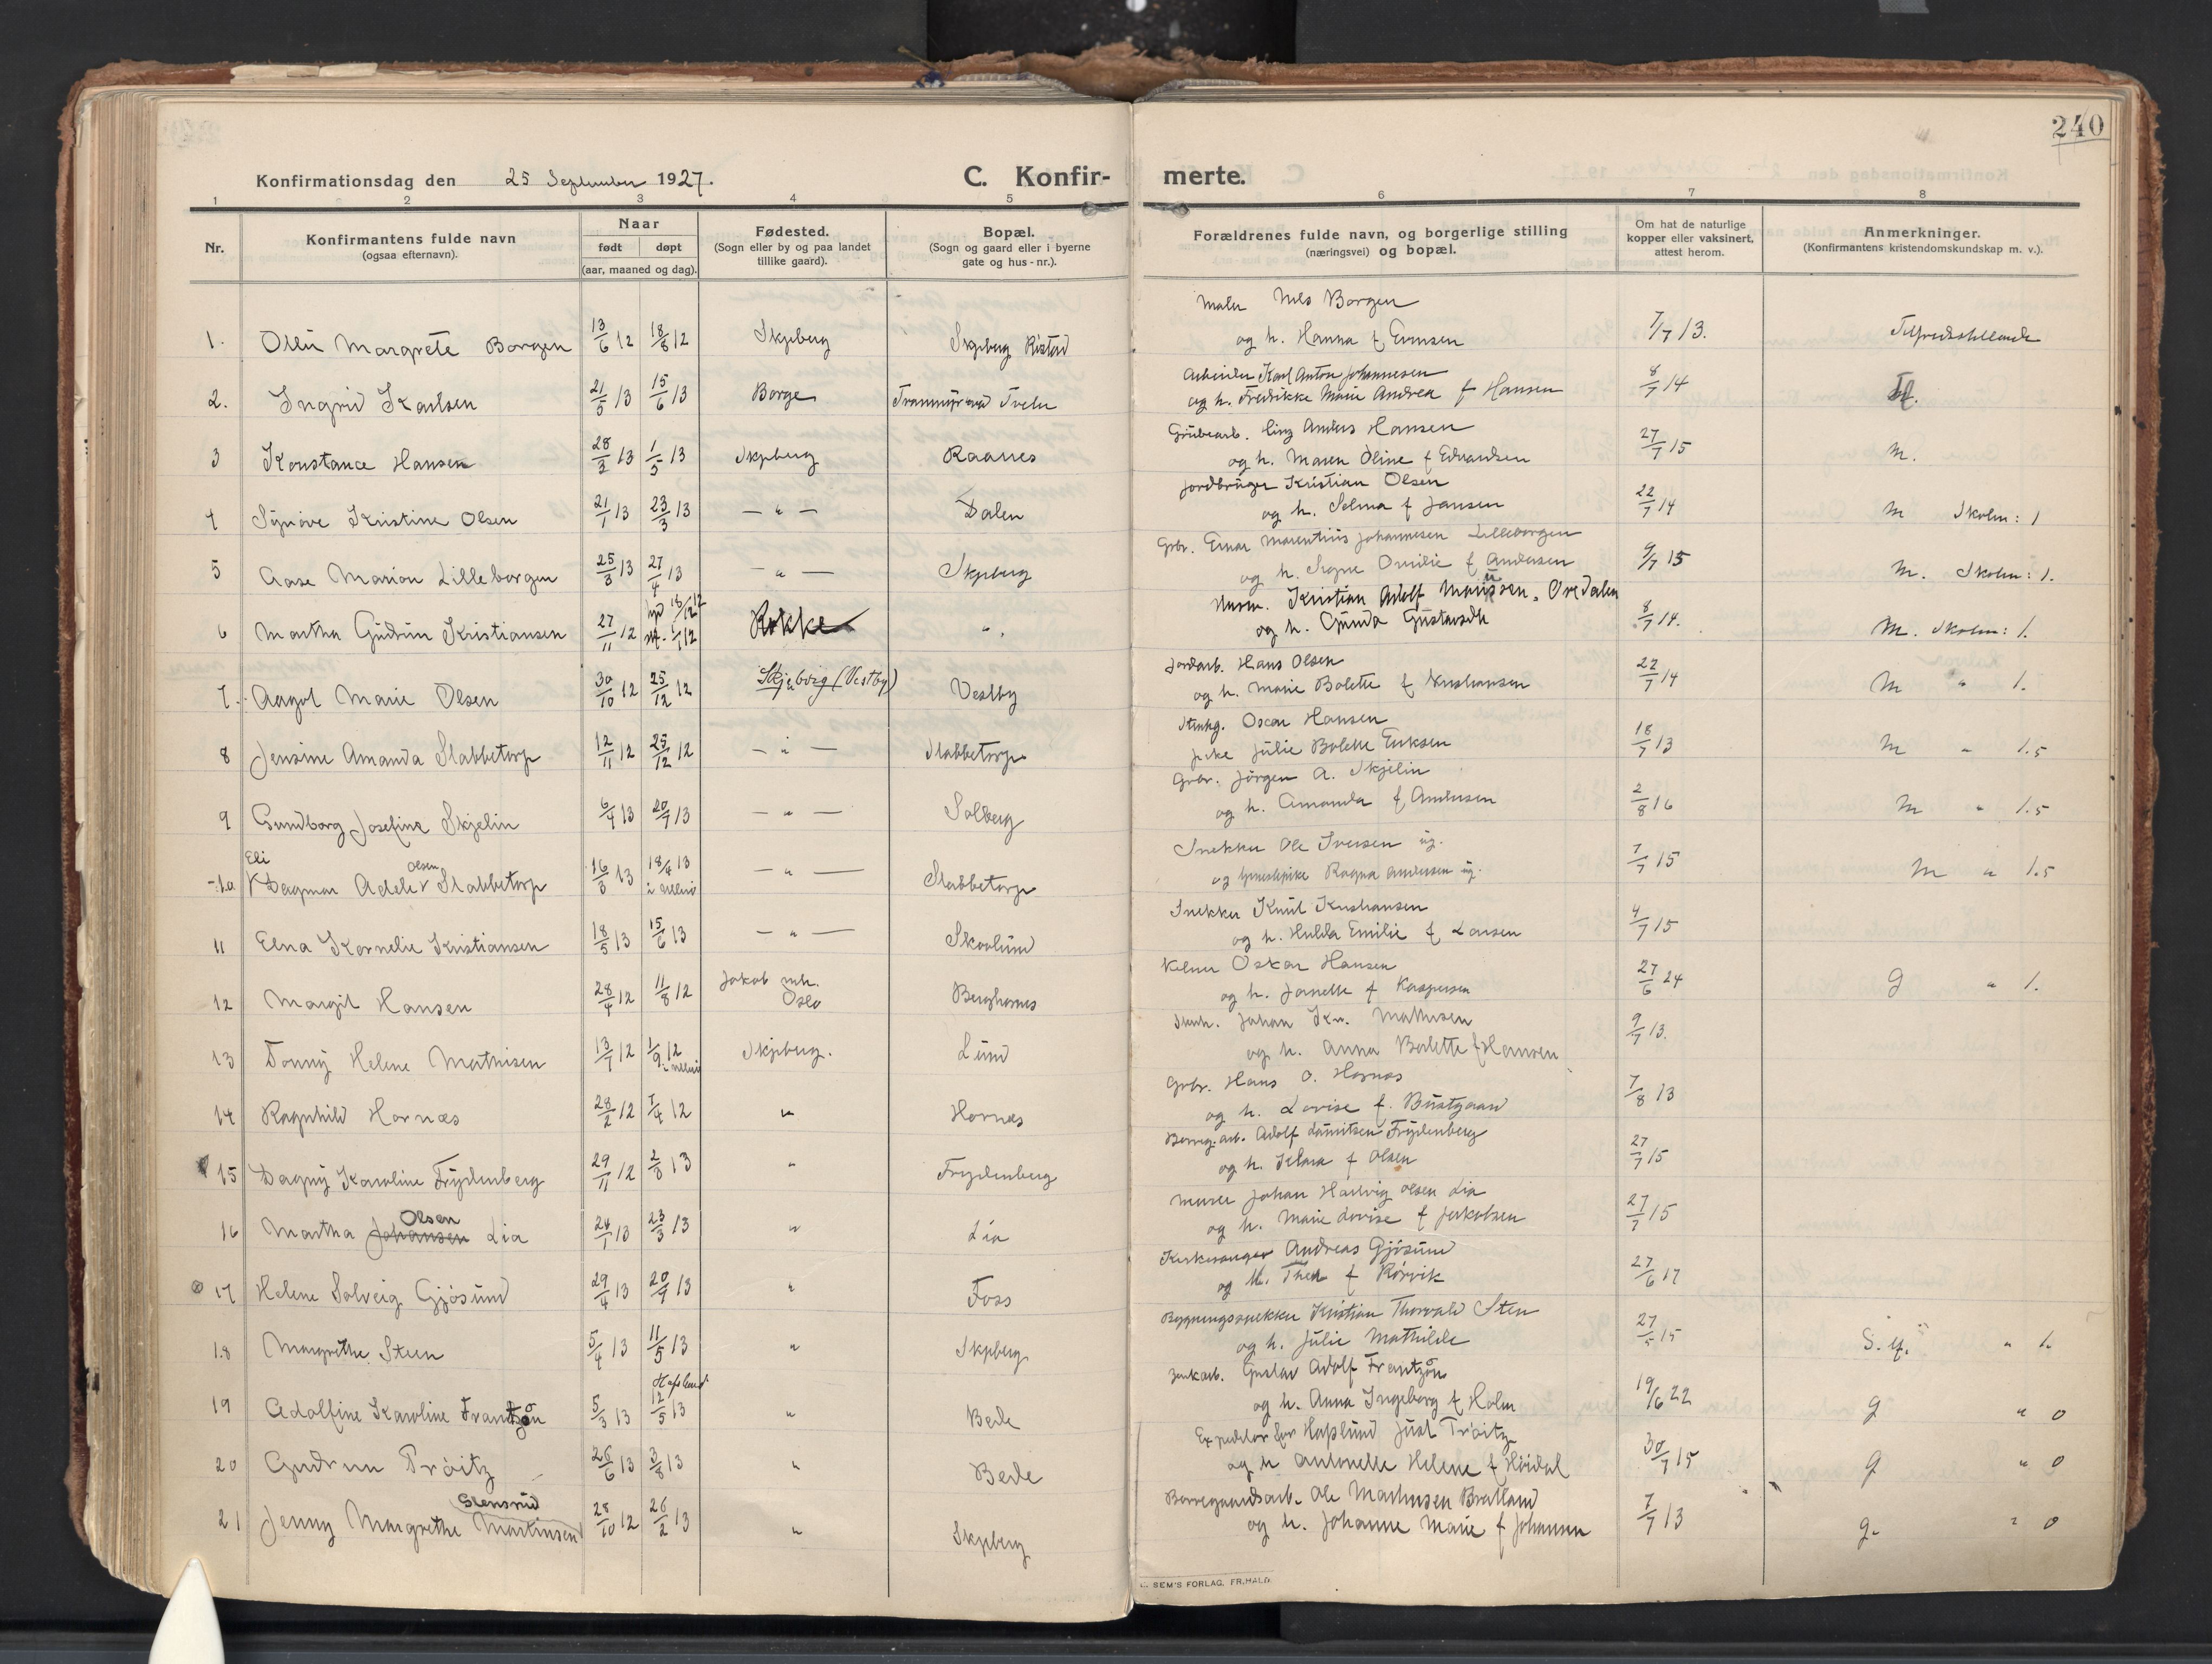 240
Konfirmationsdag den 25 September 1927.
C. Konfir-merte.
1 2 3 4 5 6 7 8
Nr.
Konfirmantens fulde navn
(ogsaa efternavn).
Naar
født døpt
(aar, maaned og dag).
Fødested.
(Sogn eller by og paa landet
tillike gaard).
Bopæl.
(Sogn og gaard eller i byerne
gate og hus-nr.).
Forældrenes fulde navn, og borgerlige stilling
(næringsvei) og bopæl.
Om hat de naturlige
kopper eller vaksinert,
attest herom.
Anmerkninger.
(Konfirmantens kristendomskundskap m. v.).
Maler Nils Borgen
1. Margrete Borgen 13/6 12 18/8 12 Skjeberg Skjeberg og h. Hanna f Evensen 7/7 13. Tilfredsstillende
Arbeider Karl Anton Johannesen
2. Ingrid Karlsen 21/5 13 15/6 13 Borge Tveter og h. Fredrikke Marie Andrea f Hansen 8/7 14 Tf.
Grubearb. Anders Hansen
3 Konstance Hansen 28/3 13 1/5 13 Skjeberg Raanes og h. Maren Oline f Edvardsen 27/7 15 M.
Jordbruger Kristian Olsen
4 Synøve Kristine Olsen 21/1 13 23/3 13 — " — Dalen og h. Selma f Jansen 22/7 14 M Skolm: 1
Grbr. Einar Marentius Johannesen Lilleborgen
5 Aase Marion Lilleborgen 25/3 13 27/4 13 — " — Skjeberg og h. Signe Omilie f Andersen 9/7 15 M. Skolm: 1.
Kristian Adolf
6 Martha Gudrun Kristiansen 27/11 12 18/12 12 1/1 12 Rokke " og h. Gunda Gustavsdtr 8/7 14. M. Skolm: 1.
Jordarb. Hans Olsen
7. Aagot Marie Olsen 30/10 12 25/12 12 Skjeberg (Vestby) Vestby og h. Marie Bolette f Kristiansen 22/7 14 M " 1.
Stenhg. Oscar Hansen
8 Jensine Amanda Slabbetorp 12/11 12 25/12 12 — " — Slabbetorp pike Julie Bolette Eriksen 18/7 13 M " 1.5
Grbr. Jörgen A. Skjelin
9 Gundborg Josefine Skjelin 6/4 13 20/7 13 — " — Solberg og h. Amanda f Andersen 2/8 16 M " 1.5
Eli Olsen
Snekker Ole Iversen ug.
10 Dagmar Adele Slabbetorp 16/3 13 18/4 13 — " — Slabbetorp og tjenestepike Ragna Andersen ug. 7/7 15 M " 1.5
Snekker Knut Kristiansen
11 Elna Kornelie Kristiansen 18/5 13 15/6 13 — " — Skovlund og h. Hulda Emilie f Larsen 4/7 15
Kelner Oskar Hansen
12 Margit Hansen 28/4 12 11/8 12 Jakob mh. Oslo Berghornes og h. Janette f Kaspersen 27/6 24 G " 1.
Stenh. Johan Kr. Mathisen
13 Tonny Helene Mathisen 13/7 12 1/9 12 Skjeberg. Lund og h. Anna Bolette f Hansen 9/7 13.
Grbr. Hans O. Hornæs
14 Ragnhild Hornæs 28/2 12 7/4 12 " Hornæs og h. Lovise f. Bustgaard 7/8 13
Borreg.arb. Adolf Lauritsen Frydenberg
15 Dagny Karoline Frydenberg 29/11 12 2/3 13 " Frydenberg og h. f Olsen 27/7 15
Murer Johan Hartvig Olsen Lia
16 Martha Johansen Olsen Lia 24/1 13 23/3 13 " Lia og h. Marie Lovise f Jakobsen 27/7 15
Kirkesanger Andreas Gjösund
17 Helene Solveig Gjösund 29/4 13 20/7 13 " Foss og h. Thea f Rörvik 27/6 17
Bygningssnekker Kristian Thorvald Sten
18 Margrethe Steen 5/4 13 11/5 13 " Skjeberg og h. Julie Mathilde 27/5 15 S. tf. " 1.
Gustav Adolf Frantzön
19 Adolfine Karoline Frantzön 5/3 13 Hafslund 12/5 13 " Bede og h. Anna Ingeborg f Holm 19/6 22 G " 0
Expeditør for Hafslund Just Tröitz
20 Gudrun Tröitz 26/6 13 3/8 13 " Bede og h Antonette Helene f Höidal 30/7 15 G " 0
Stensrud
Borregaardsarb. Ole Mathisen Bratland
21 Jenny Margrethe Martinsen 28/10 12 26/2 13 " Skjeberg og h. Johanne Marie f Johansen 7/7 13 G. " 0
SEM'S FORLAG, FR.HALD